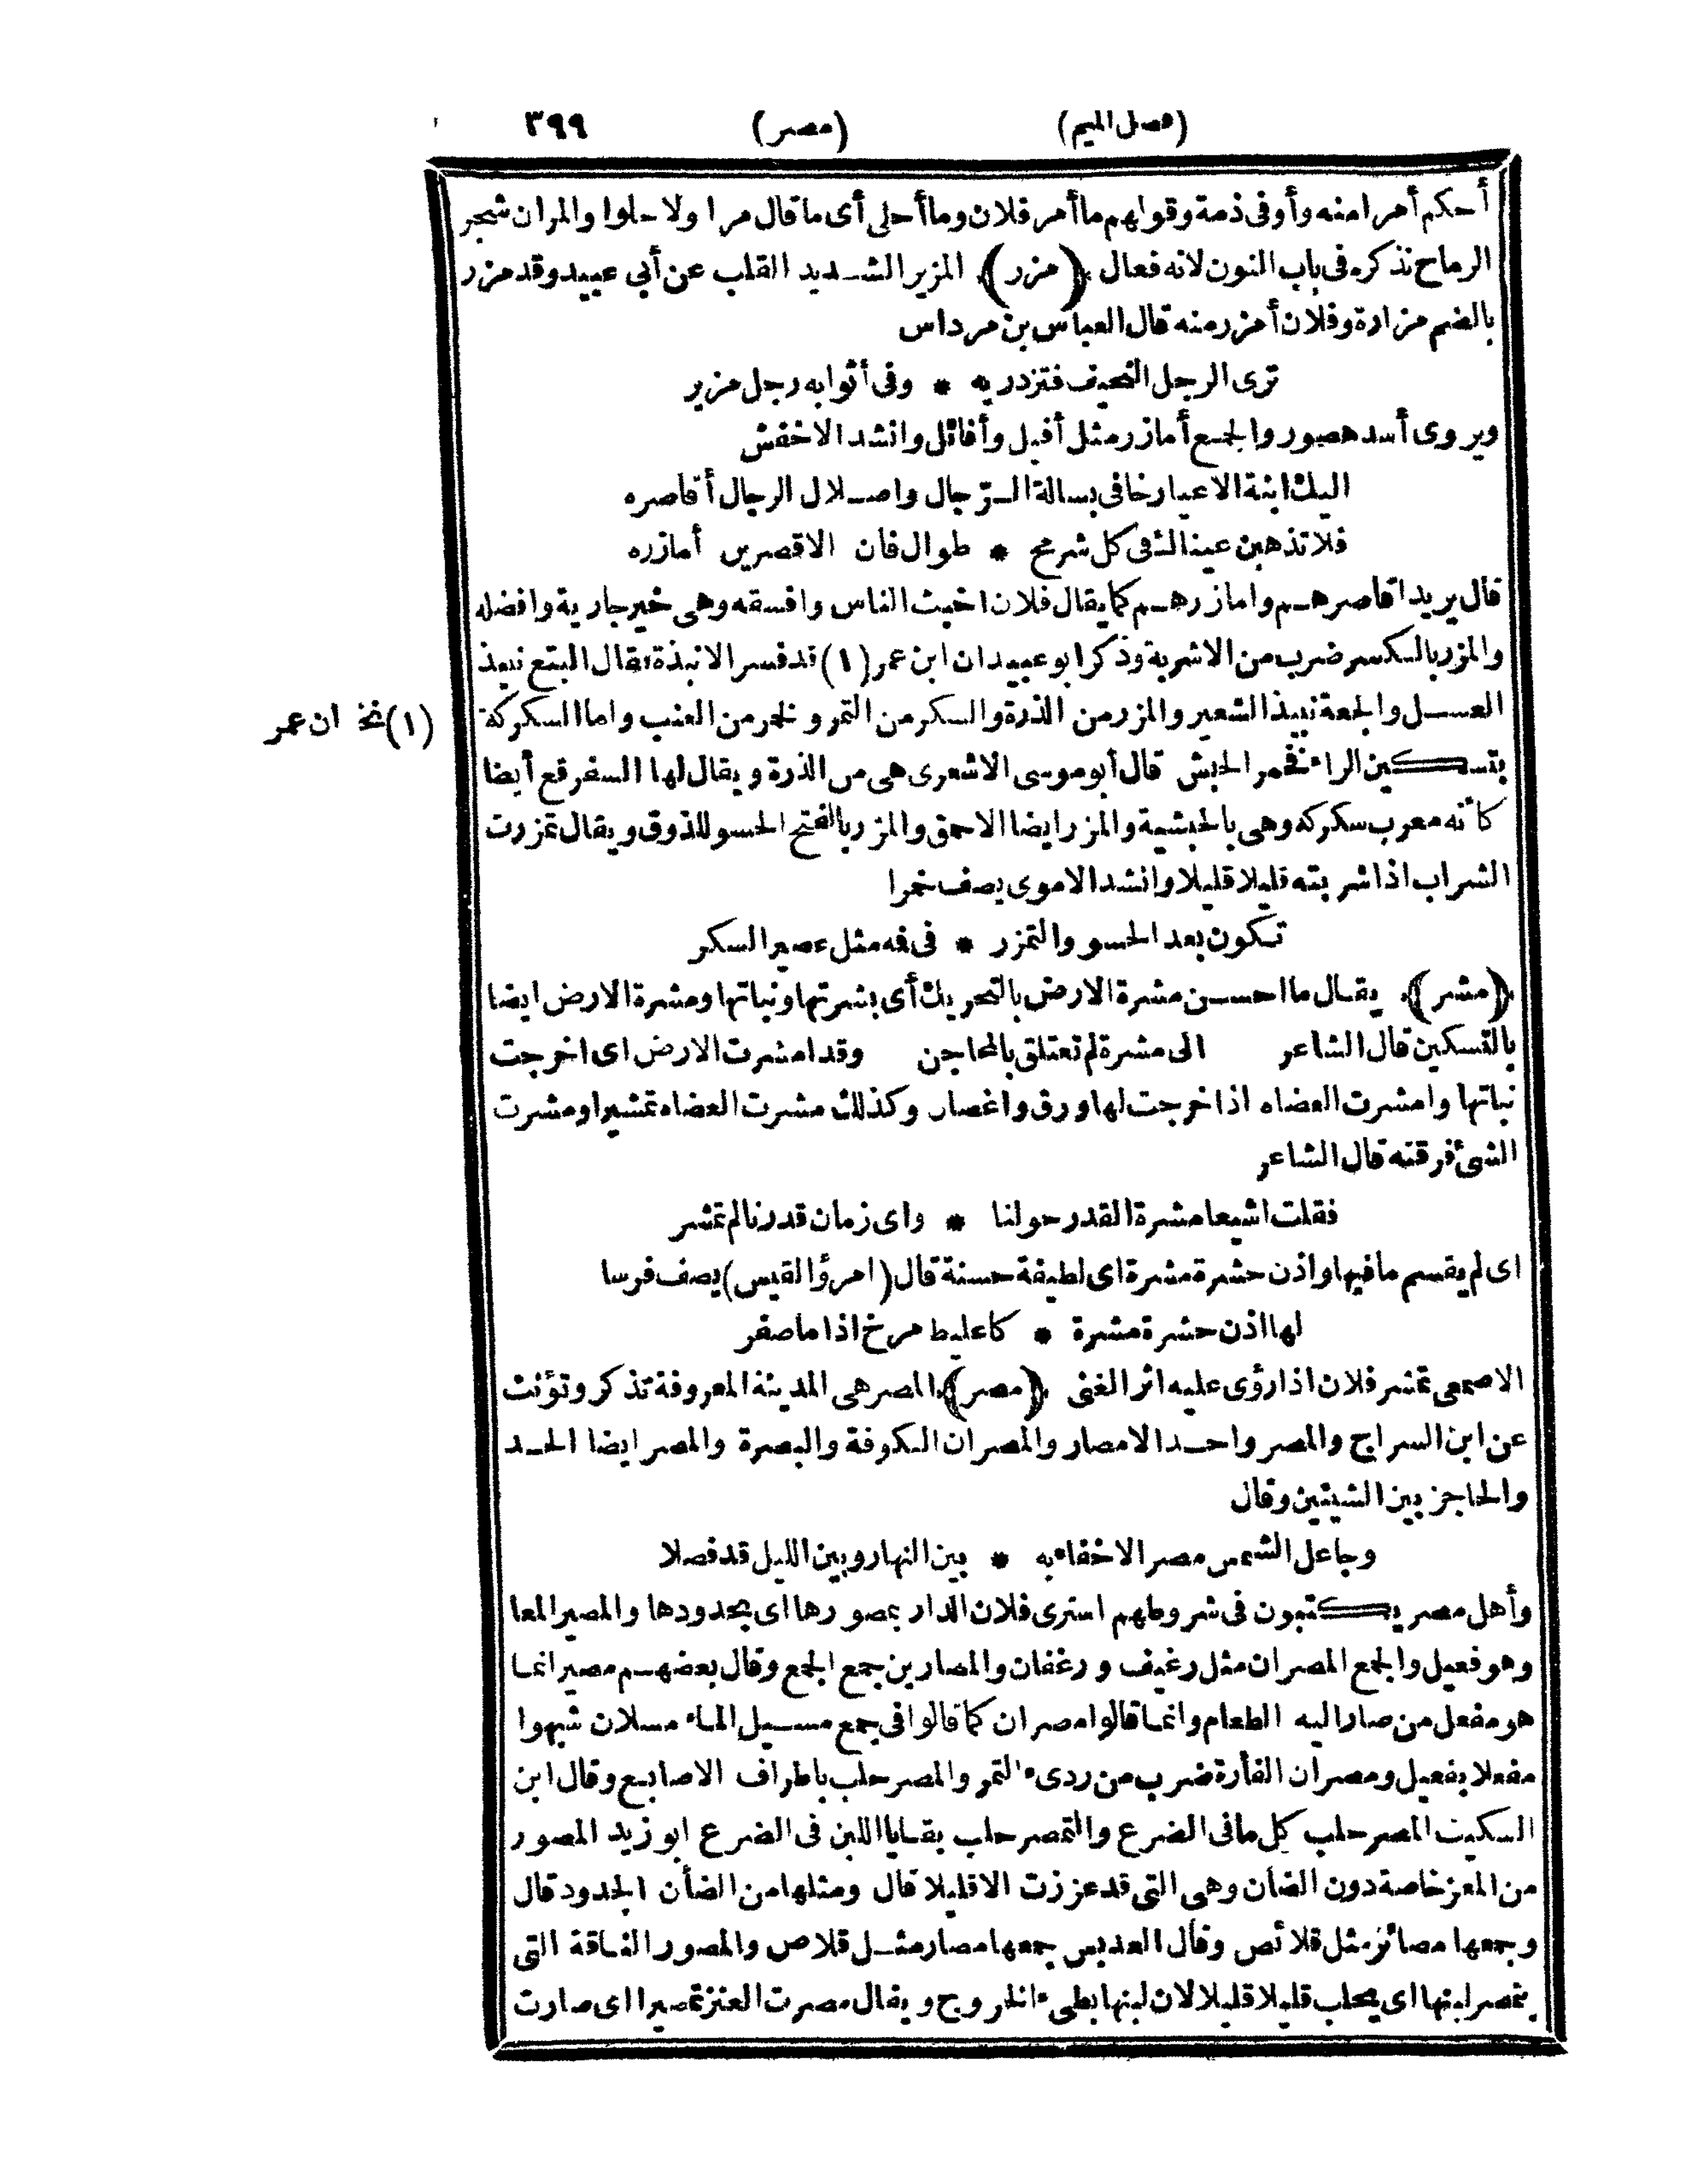 (فصل الميم) (مصر) ٣٩٩
أحكم أمرا منه وأوفى ذمة وقولهم ما أمر فلان وما أحلى أى ما قال مرا ولا حلوا والمران شجر
الرماح نذكره فى باب النون لانه فعال (مزر) المزير الشديد القلب عن أبي عبيد وقد مزر
بالضم مزارة وفلان أمزر منه قال العباس بن مرداس
ترى الرجل النحيف فتزدريه * وفى أثوابه رجل مزير
ويروى أسد هصور والجمع أمازر مثل أفيل وأفائل وانشد الاخفش
اليك ابنة الاعيار خافى بسالة الرّجال واصلال الرجال أقاصره
فلا تذهبن عيناك فى كل شرمح * طوال فان الاقصرين أمازره
قال يريد اقاصرهم وامازرهم كما يقال فلان اخبث الناس وافسقه وهى خير جارية وافضله
والمزر بالكسر ضرب من الاشربة وذكر ابو عبيد ان ابن عمر (١) قد فسر الانبذة فقال البتع نبيذ
العسل والجعة نبيذ الشعير والمزر من الذرة والسكر من التمر والخمر من العنب واما السكركة
(١) نخ ان عمر
بتسكين الراء فخمر الحبش قال أبو موسى الاشعرى هى من الذرة ويقال لها السقرقع أيضا
كأنه معرب سكركه وهى بالحبشية والمزر ايضا الاحمق والمزر بالفتح الحسو للذوق ويقال تمزرت
الشراب اذا شربته قليلا قليلا وانشد الاموى يصف خمرا
تكون بعد الحسو والتمزر * فى فه مثل عصير السكر
(مشر) يقال ما احسن مشرة الارض بالتحريك أى بشرتها ونباتها ومشرة الارض ايضا
بالتسكين قال الشاعر الى مشرة لم تعتلق بالمحاجن وقد امشرت الارض اى اخرجت
نباتها وامشرت العضاه اذا خرجت لها ورق واغصان وكذلك مشرت العضاه تمشيرا ومشرت
الشئ فرقته قال الشاعر
فقلت اشيعا مشرة القدر حولنا * واى زمان قدرنا لم تمشر
اى لم يقسم ما فيها واذن حشرة مشرة اى لطيفة حسنة قال (امرؤ القيس) يصف فرسا
لها اذن حشرة مشرة * كاعليط مرخ اذا ما صفر
الاصمعى تمشر فلان اذا رؤى عليه اثر الغنى (مصر) المصر هى المدينة المعروفة تذكر وتؤنث
عن ابن السراج والمصر واحد الامصار والمصران الكوفة والبصرة والمصر ايضا الحد
والحاجز بين الشيئين وقال
وجاعل الشمس مصرا لاخفاء به * بين النهار وبين الليل قد فصلا
وأهل مصر يكتبون فى شروطهم اشترى فلان الدار بمصورها اى بحدودها والمصير المعا
وهو فعيل والجمع المصران مثل رغيف ورغفان والمصارين جمع الجمع وقال بعضهم مصير انما
هو مفعل من صار اليه الطعام وانما قالوا مصران كما قالوا فى جمع مسيل الماء مسلان شبهوا
مفعلا بفعيل ومصران الفأرة ضرب من ردىء التمر والمصر حلب باطراف الاصابع وقال ابن
السكيت المصر حلب كل ما فى الضرع والتمصر حلب بقايا اللبن فى الضرع ابو زيد المصور
من المعز خاصة دون الضأن وهى التى قد عززت الا قليلا قال ومثلها من الضأن الجدود قال
وجمعها مصائر مثل قلائص وقال العدبس جمعها مصار مثل قلاص والمصور الناقة التى
يتمصر لبنها اى يحلب قليلا قليلا لان لبنها بطىء الخروج ويقال مصرت العنز تمصيرا اى صارت